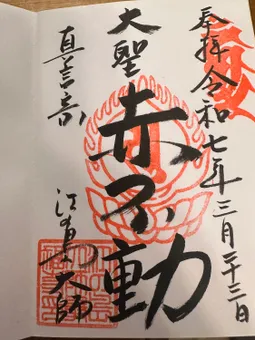 奉拝 令和七年三月二十三日
大聖
赤不動
真言宗
江の島大師